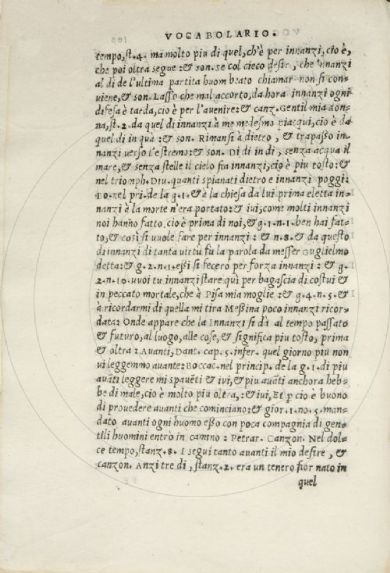 VOCABOLARIO.
tempo, st. 4. ma molto piu di quel, ch'è per innanzi, cio è,
che poi oltra segue: & son. se col cieco desir, che innanzi
al di de l'ultima partita huom beato chiamar non si con=
uiene, & son. Lasso che mal accorto, da hora innanzi ogni
difesa è tarda, cio è per l'auenire: & canz. Gentil mia don=
na, st. 2. da quel di innanzi à me medesmo piacqui, cio è da
quel di in quà: & son. Rimansi à dietro, & trapasso in=
nanzi uerso l'estremo: & son. Di di in di, senza acqua il
mare, & senza stelle il cielo fia innanzi, cio è piu tosto: &
nel triomph. Diu. quanti spianati dietro e innanzi poggi
Bo. nel pri. de la g. 1. è la chiesa da lui prima eletta in=
nanzi à la morte n'era portato: & iui, come molti innanzi
noi hanno fatto. cio è prima di noi, & g. 1. n. 1. ben hai fat=
to, & così si uuole fare per innanzi: & n. 8. & da questo
di innanzi di tanta uirtù fu la parola da messer Guglielmo
detta: & g. 2. n. 1. essi si fecero per forza innanzi: & g.
2. n. 10. uoi tu innanzi stare quì per bagascia di costui &
in peccato mortale, che à Pisa mia moglie: & g. 4. n. 5. &
à ricordarmi di quella mi tira Messina poco innanzi ricor=
data: Onde appare che la innanzi si dà al tempo passato
& futuro, al luogo, alle cose, & significa piu tosto, prima
e oltra: Auanti, Dant. cap. 5. infer. quel giorno piu non
ui leggemmo auante: Boccac. nel princip. de la g. 1. di piu
auāti leggere mi spauēti & iui, & piu auāti anchora heb=
be di male, cio è molto piu oltra: & iui, Et però è buono
di prouedere auanti che cominciano: & gior. 1. no. 5. man=
dato auanti ogni huomo esso con poca compagnia di gen=
tili huomini entrò in camno: Petrar. Canzon. Nel dol=
ce tempo, stanz. 8. I segui tanto auanti il mio desire, &
canzon. Anzi tre di, stanz. 2. era un tenero fior nato in
quel